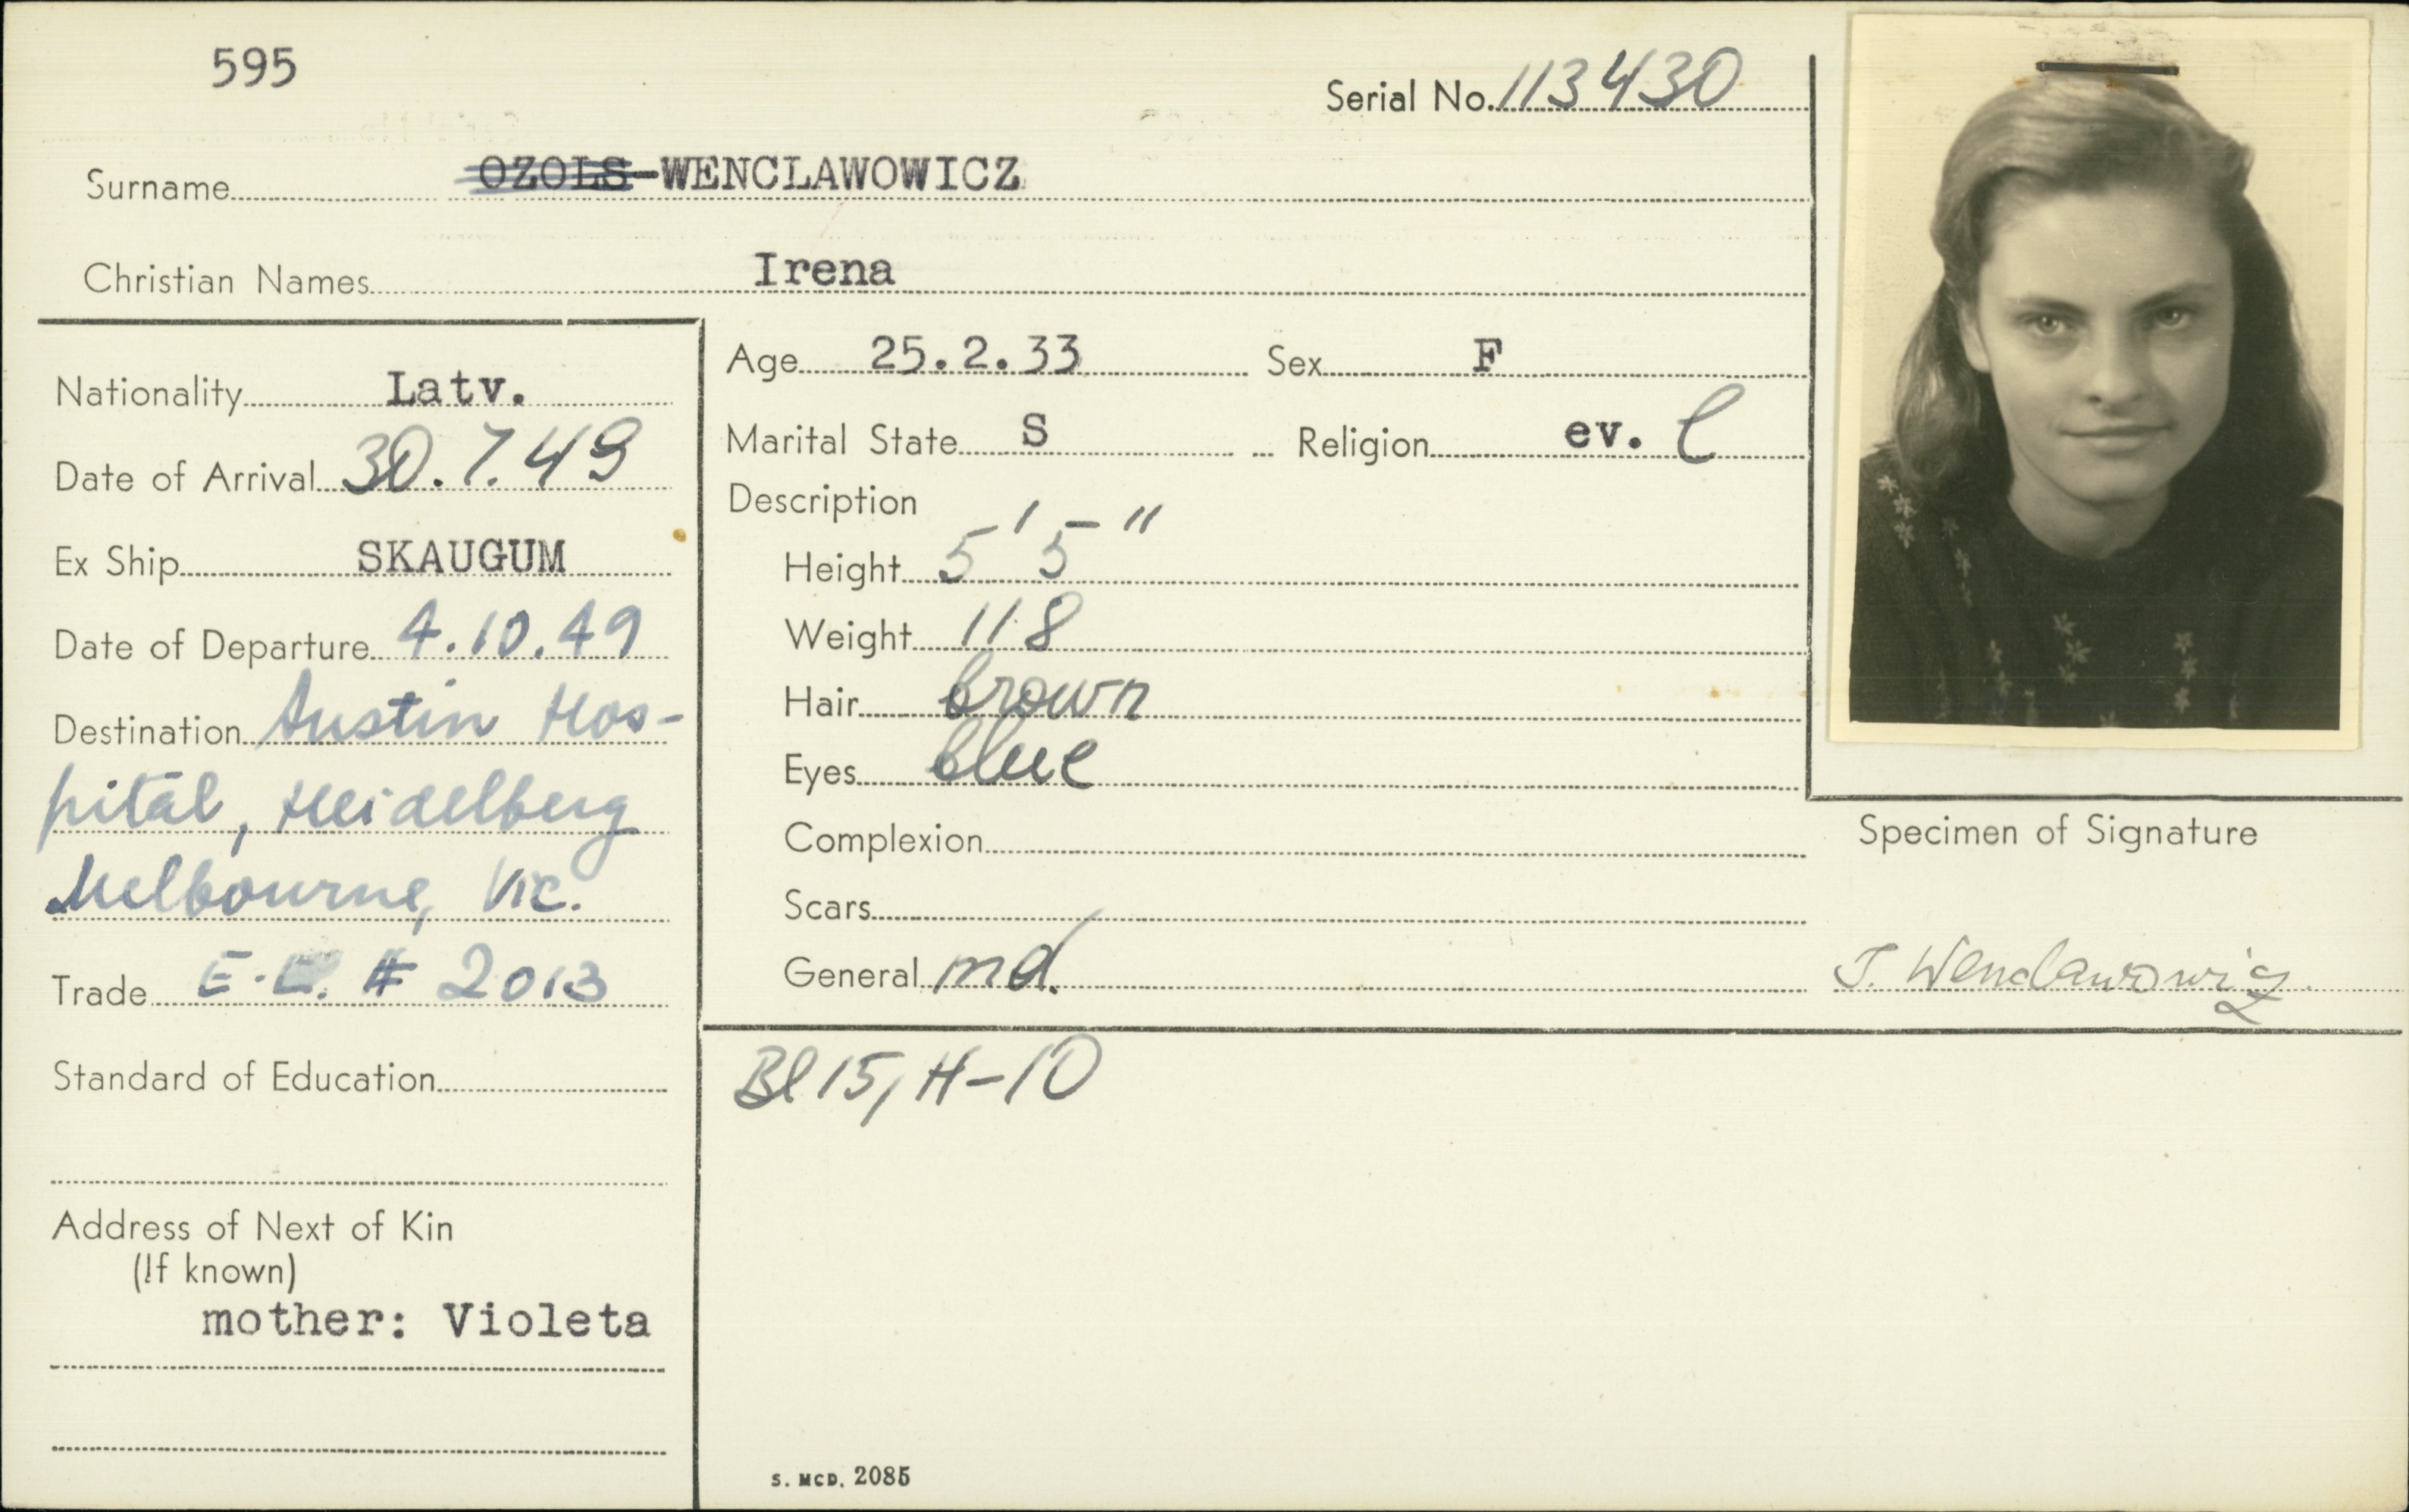 595
Serial No. 113430
Surname OZOLS-WENCLAWOWICZ
Christian Names Irena
Nationality Latv.
Date of Arrival 30.7.49
Ex Ship SKAUGUM
Date of Departure 4.10.49
Destination Austin Hos-
pital, Heidelberg
Melbourne, Vic.
Trade E. # 2013
Standard of Education
Address of Next of Kin
(If known)
mother: Violeta
Age 25.2.33 Sex F
Marital State S Religion ev. l
Description
Height 5' 5"
Weight 118
Hair brown
Eyes blue
Complexion
Scars
General md.
Bl 15, H-10
S. MCD. 2085
Specimen of Signature
I. Wenclawowicz